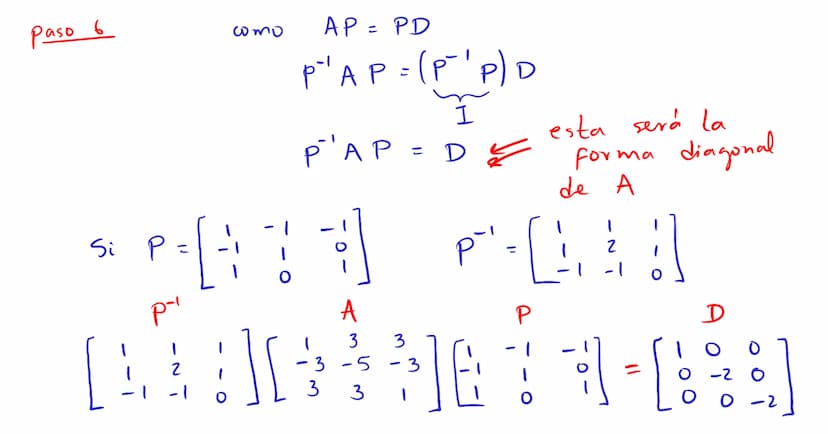 Paso 6
como AP = PD
P⁻¹ A P = (P⁻¹ P) D
I
P⁻¹ A P = D ⇐ esta será la
forma diagonal
de A
Si P = [1 -1 -1; -1 1 0; 1 0 1] P⁻¹ = [1 1 1; 1 2 1; -1 -1 0]
P⁻¹ A P D
[1 1 1; 1 2 1; -1 -1 0] [1 3 3; -3 -5 -3; 3 3 1] [1 -1 -1; -1 1 0; 1 0 1] = [1 0 0; 0 -2 0; 0 0 -2]